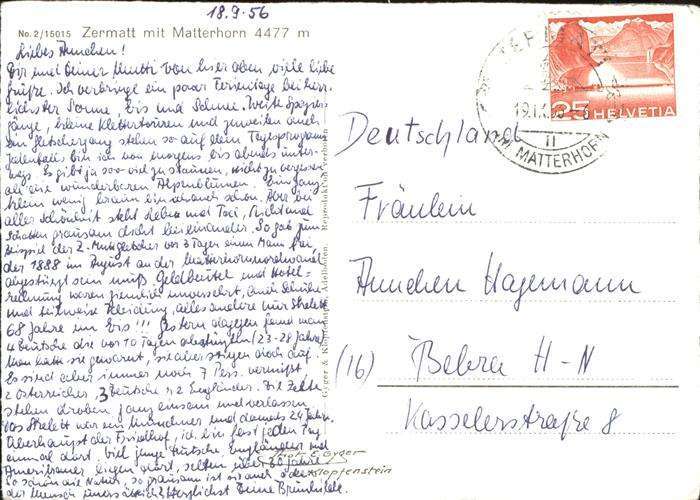 18.9.56
No. 2/15015 Zermatt mit Matterhorn 4477 m
Liebes Annchen!
Dir und Deiner Mutti von hier oben, viele liebe
Grüße. Ich verbringe ein paar Ferientage bei herr-
lichster Sonne, Eis und Schnee. Weite Spazier-
gänge, kleine Klettertouren und zuweilen auch
ein Gletschergang stehen so auf dem Tagesprogramm
Jedenfalls bin ich von morgens bis abends unter-
wegs. Es gibt ja so viel zu staunen, nicht zu vergessen
all die wunderbaren Alpenblumen. Ein ganz
klein wenig braun bin ich auch schon. Aber bei
aller Schönheit steht Leben und Tod, Licht und
Schatten grausam dicht beieinander. So gab zum
Beispiel der Z-Muttgletscher vor 3 Tagen einen Mann frei,
der 1888 im August an der Matterhornnordwand
abgestürzt sein muß. Geldbeutel und Hotel-
rechnung waren ziemlich unversehrt, auch Schuhe
und teilweise Kleidung, alles andere nur Skelett
68 Jahre im Eis!!! Gestern dagegen fand man
4 Deutsche die vor 10 Tagen abstürzten (23-28 Jahre)
Man hatte sie gewarnt, sie aber stiegen doch auf.
Es sind aber immer noch 7 Pers. vermißt
2 Österreicher, 3 Deutsche u. 2 Engländer. Die Zelte
stehen droben ganz einsam und verlassen
Das Skelett war ein Münchner und damals 24 Jahre.
Überhaupt der Friedhof, ich bin fast jeden Tag
einmal dort, viel junge Deutsche, Engländer und
Amerikaner liegen dort, selten über 30 Jahre.
So schön die Natur, so grausam ist sie auch oder
der Mensch unersättlich! Herzlichst Deine Brunhilde.
Phot. E. Gyger
Klopfenstein
Gyger & Klopfenstein, Adelboden. Reproduktion verboten
HELVETIA
25
ZERMATT
19.IX.56
AM MATTERHORN
Deutschland
Fräulein
Annchen Hagemann
(16) Bebra H-N
Kasselerstraße 8